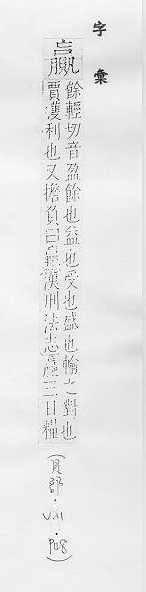 字彙
贏
餘輕切音盈餘也益也受也盛也輸之對也
賈獲利也又擔負曰贏漢刑法志贏三日糧
(貝部·V.11·P48)